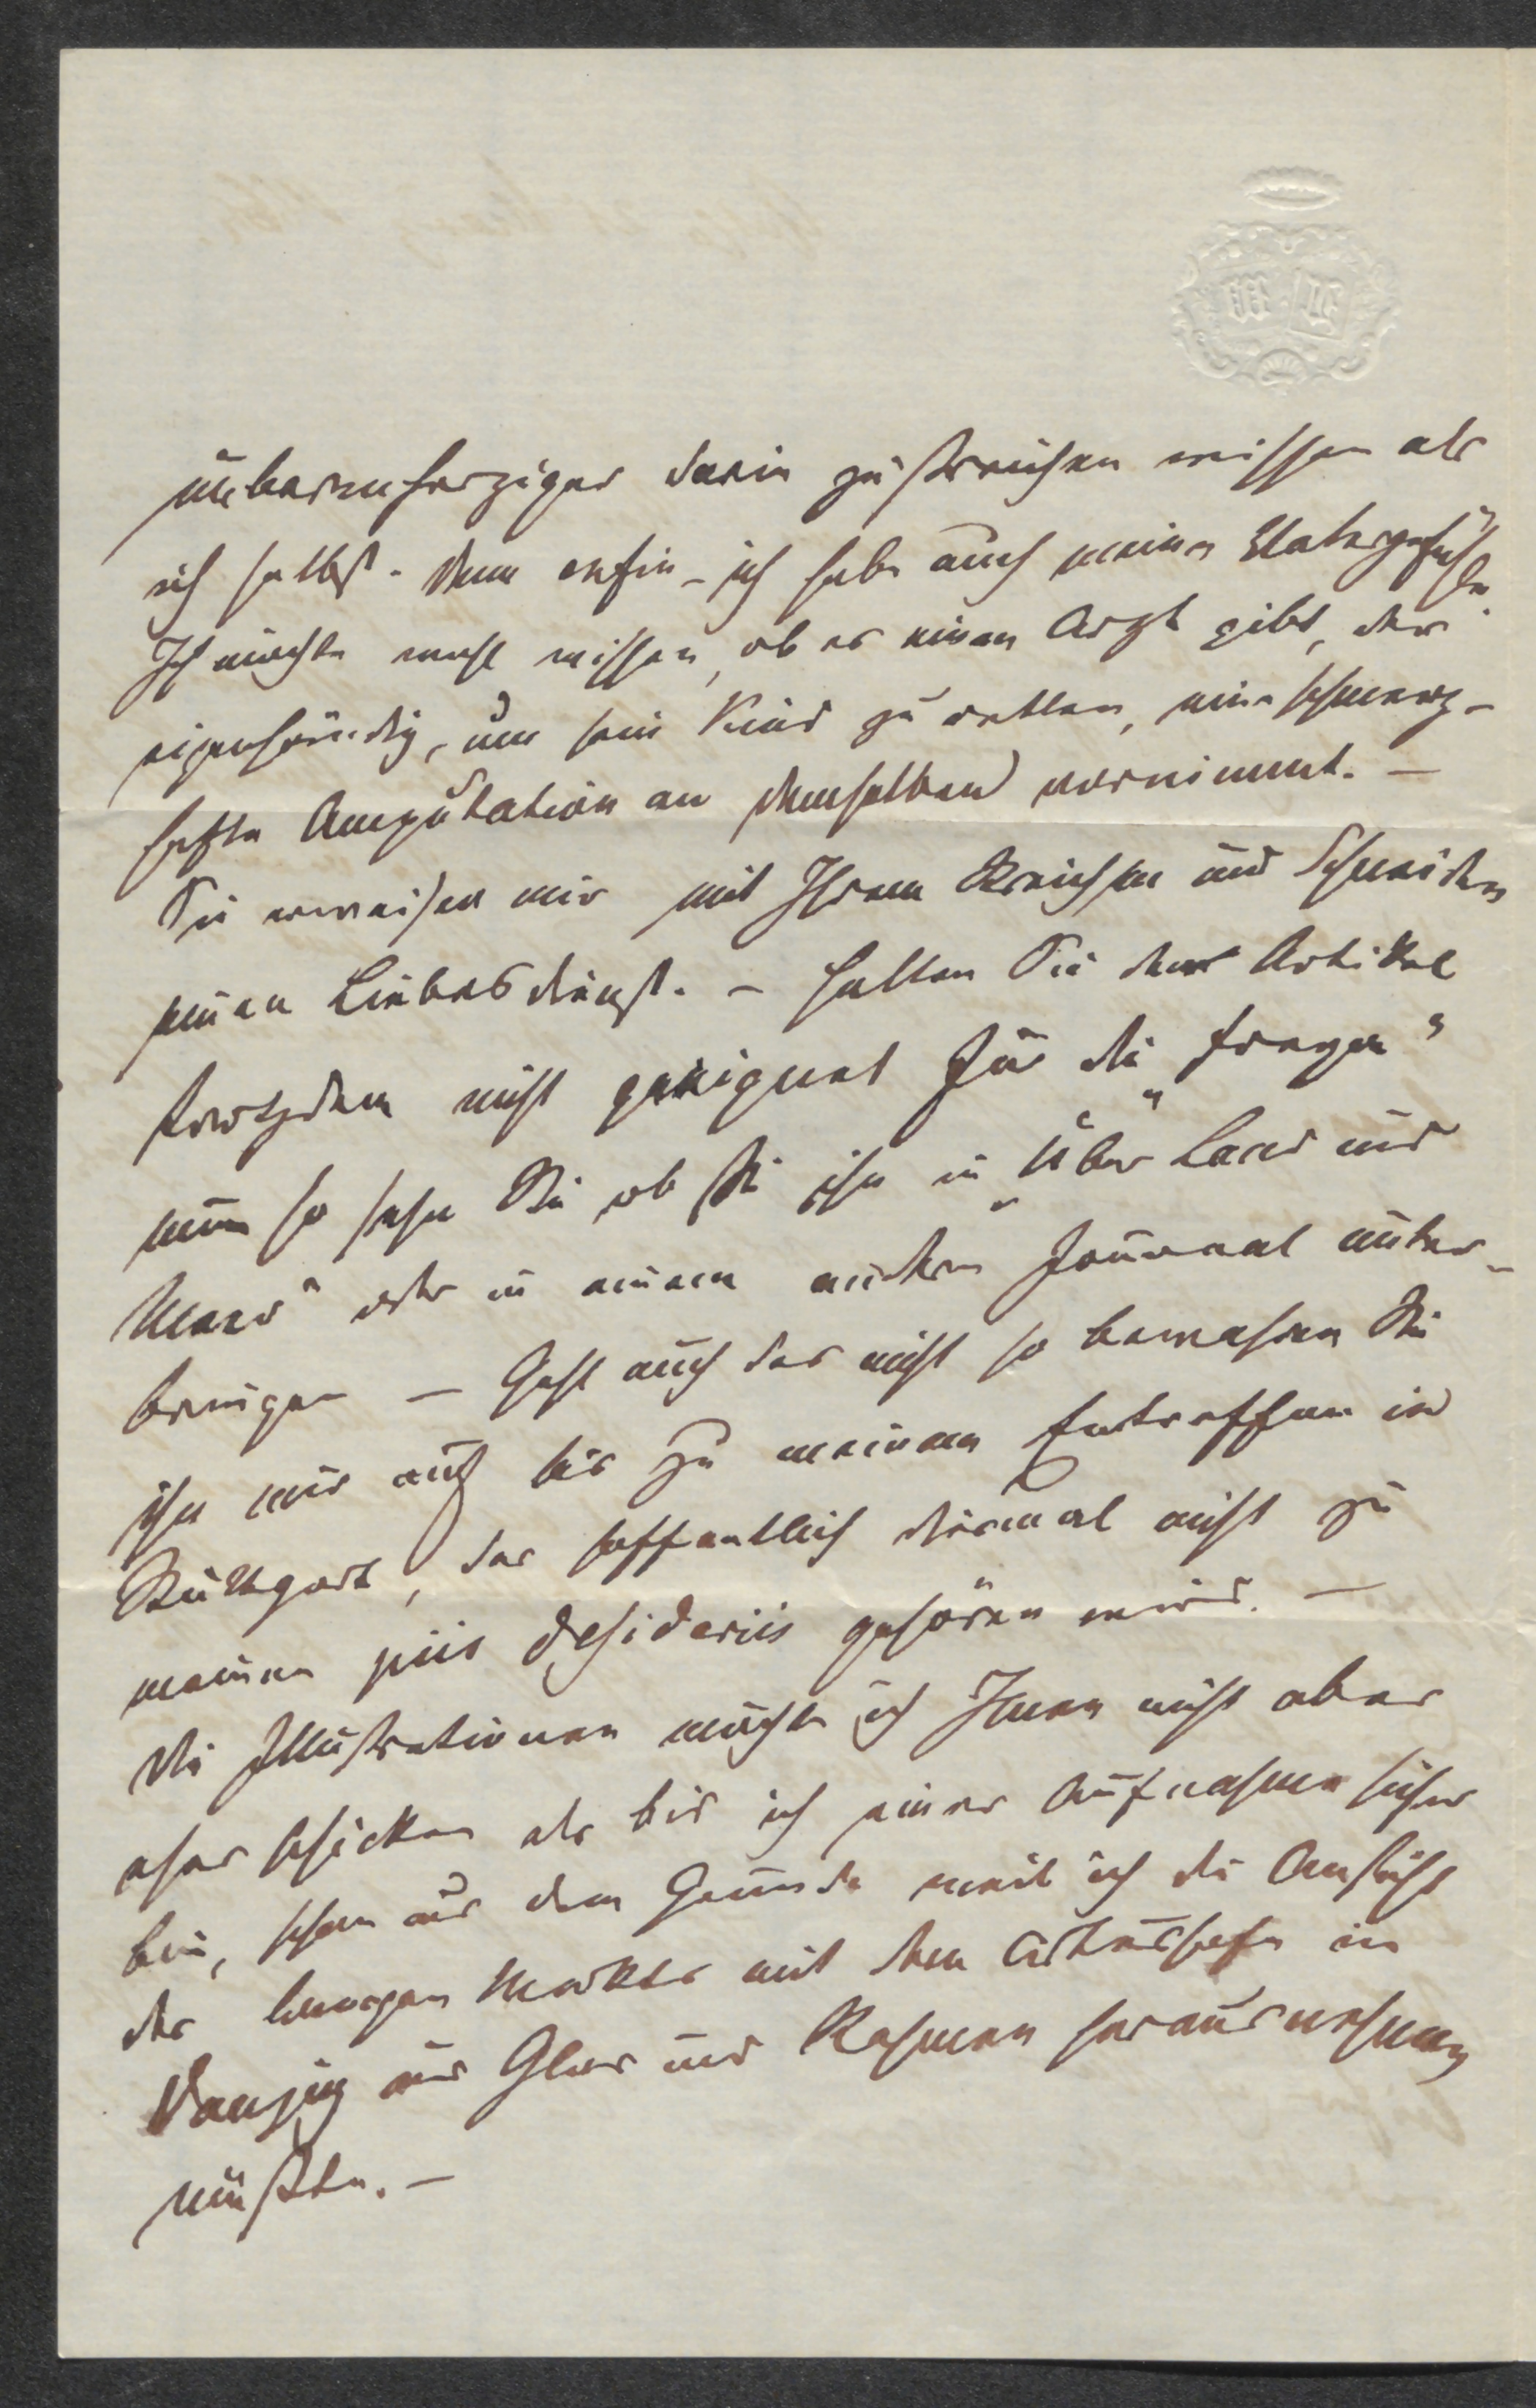 unbarmherziger darin zu streichen wissen als
ich selbst. Denn enfin – ich habe auch meine Vatergefühle.
Ich möchte wohl wissen, ob es einen Arzt gibt, der
eigenhändig, um sein Kind zu retten, eine schmerz-
hafte Amputation an demselben vornimmt. –
Sie erweisen mir mit Ihrem Streichen und Schneiden
einen Liebesdienst. – Halten Sie den Artikel
trotzdem nicht geeignet für die „Fragen“
nun so sehen Sie ob Sie ihn in „Über Land und
Meer“ oder in einem andern Journal unter-
bringen – Geht auch das nicht so bewahren Sie
ihn mir auf bis zu meinem Eintreffen in
Stuttgart, das hoffentlich diesmal nicht zu
meinen piis desideriis gehören wird. –
Die Illustrationen möchte ich Ihnen nicht aber
eher schicken als bis ich einer Aufnahme sicher
bin, schon aus dem Grunde weil ich die Ansicht
des langen Marktes mit dem Artushofe in
Danzig aus Glas und Rahmen herausnehmen
müßte. –